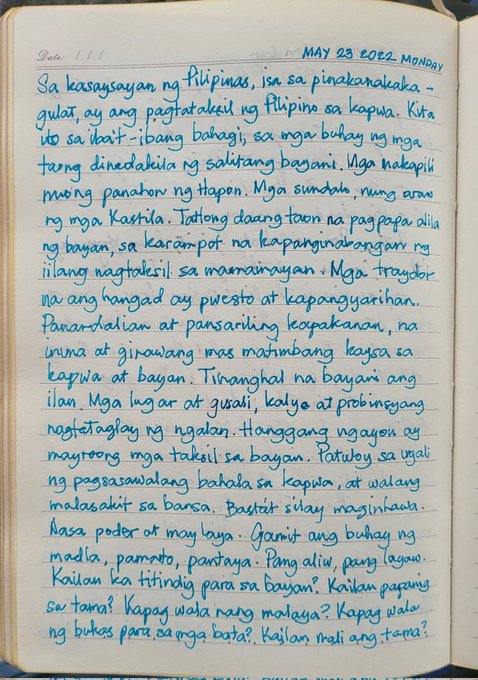 Date: / / /
MAY 23 2022 MONDAY
Sa kasaysayan ng Pilipinas, isa sa pinakanakaka-
gulat, ay ang pagtataksil ng Pilipino sa kapwa. Kita
ito sa iba't-ibang bahagi, sa mga buhay ng mga
taong dinedakila ng salitang bayani. Mga nakapili
nuong panahon ng Hapon. Mga sundalo, nung araw
ng mga Kastila. Tatlong daang taon na pagpapa alila
ng bayan, sa karampot na kapanginabangan ng
iilang nagtaksil sa mamamayan. Mga traydor
na ang hangad ay pwesto at kapangyarihan.
Panandalian at pansariling kapakanan, na
inuna at ginawang mas matimbang kaysa sa
kapwa at bayan. Tinanghal na bayani ang
ilan. Mga lugar at gusali, kalye at probinsyang
nagtataglay ng ngalan. Hanggang ngayon ay
mayroong mga taksil sa bayan. Patuloy sa ugali
ng pagsasawalang bahala sa kapwa, at walang
malasakit sa bansa. Basta't sila'y maginhawa.
Nasa poder at may laya. Gamit ang buhay ng
madla, pamato, pantaya. Pang aliw, pang layaw.
Kailan ka titindig para sa bayan? Kailan papanig
sa tama? Kapag wala nang malaya? Kapag wala
ng bukas para sa mga bata? Kailan mali ang tama?